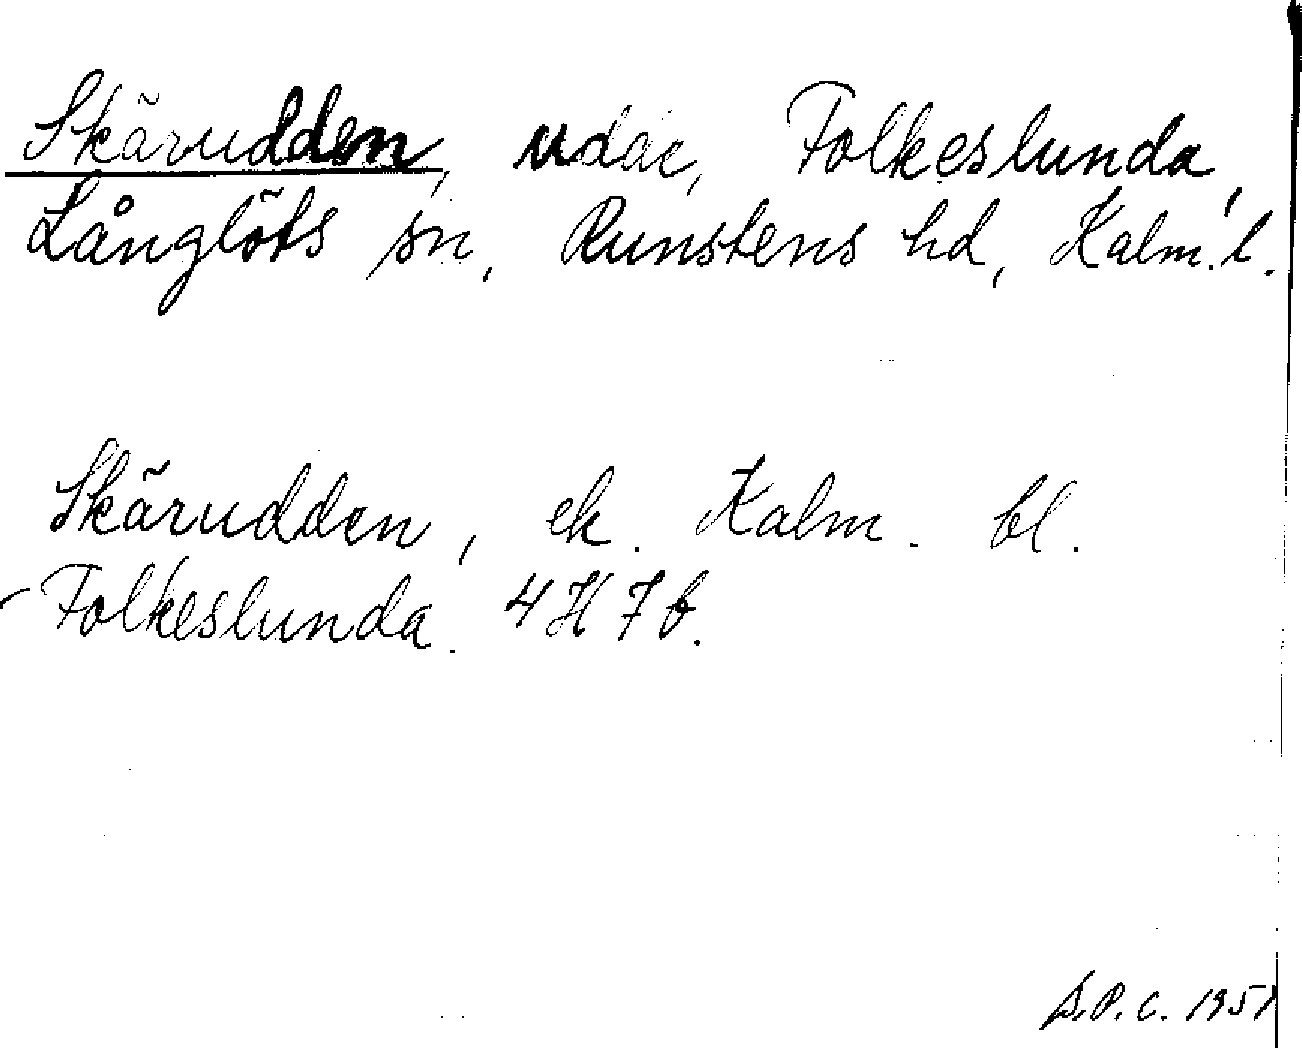 Skärudden, udde, Folkeslunda,
Långlöts sn, Runstens hd, Kalm. l.
Skärudden, ek. Kalm. bl.
Folkeslunda 4H7b.
S.P.C. 1951